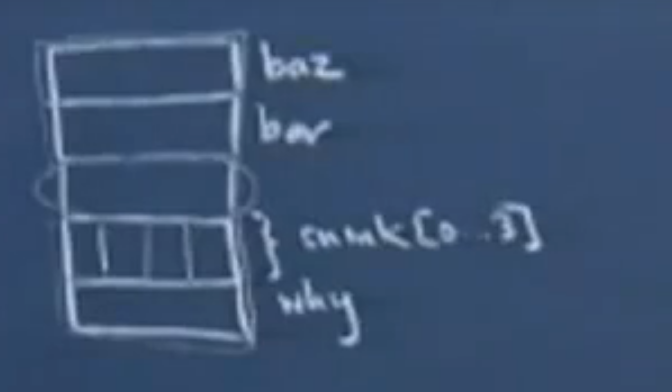 baz
bar
snmk[0..3]
why